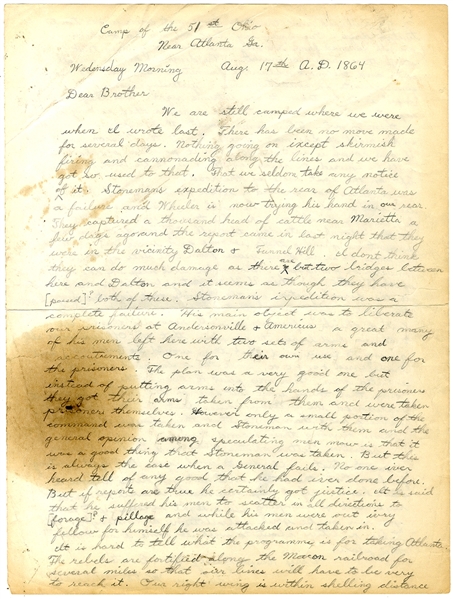 Camp of the 51st Ohio
Near Atlanta Ga.
Wedensday Morning Aug. 17th A.D. 1864
Dear Brother
We are still camped where we were
when I wrote last. There has been no move made
for several days. Nothing going on except skirmish
firing and cannonading along the lines and we have
got so used to that. That we seldom take any notice
of it. Stoneman's expedition to the rear of Atlanta was
a failure and Wheeler is now trying his hand in our rear.
They captured a thousand head of cattle near Marietta a
few days ago and the report came in last night that they
were in the vicinity Dalton & Tunnel Hill. I dont think
they can do much damage as there are but two bridges between
here and Dalton and it seems as though they have
[passed]? both of these. Stoneman's expedition was a
complete failure. His main object was to liberate
our prisoners at Andersonville & Americus a great many
of his men left here with two sets of arms and
accoutrements. One for their own use and one for
the prisoners. The plan was a very good one but
instead of putting arms into the hands of the prisoners
they got their arms taken from them and were taken
prisoners themselves. However only a small portion of the
command was taken and Stoneman with them and the
general opinion among speculating men now is that it
was a good thing that Stoneman was taken. But this
is always the case when a General fails. No one ever
heard tell of any good that he had ever done before.
But if reports are true he certainly got justice. It is said
that he suffered his men to scatter in all directions to
forage & pillage and while his men were every
fellow for himself he was attacked and taken in.
It is hard to tell what the programme is for taking Atlanta.
The rebels are fortified along the Macon railroad for
several miles so that our lines will have to be very
to reach it. Our right wing is within shelling distance